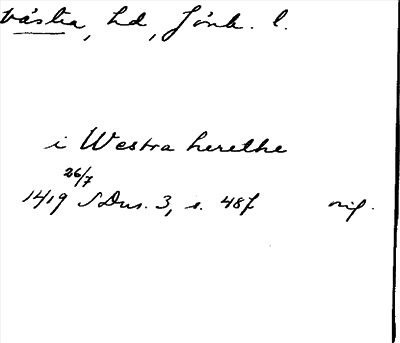 Västra, hd, Jönk. l.
i Westra herethe
26/7
1419 SDns. 3, s. 48f orig.